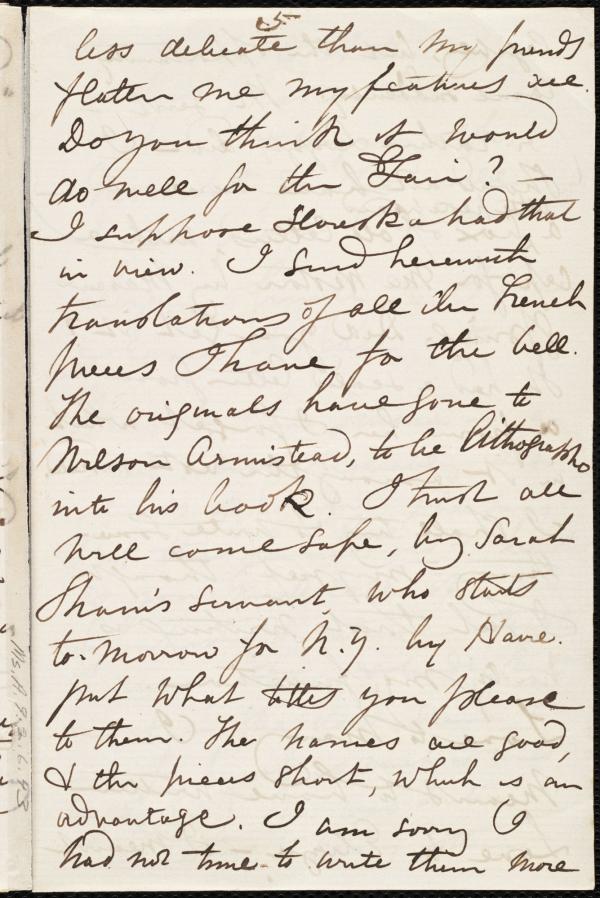 5
less delicate than my friends
flatter me my features are.
Do you think it would
do well for the Fair? —
I suppose had that
in view. I send herewith
translations of all the French
pieces I have for the bell.
The originals have gone to
Wilson Armistead, to be lithographd
into his book. I trust all
will come safe, by Sarah
Sham's servant, who starts
to-morrow for N.Y. by Havre.
put what titles you please
to them. The names are good,
& the pieces short, which is an
advantage. I am sorry I
had not time to write them more
Ms.A.9.2.6.93